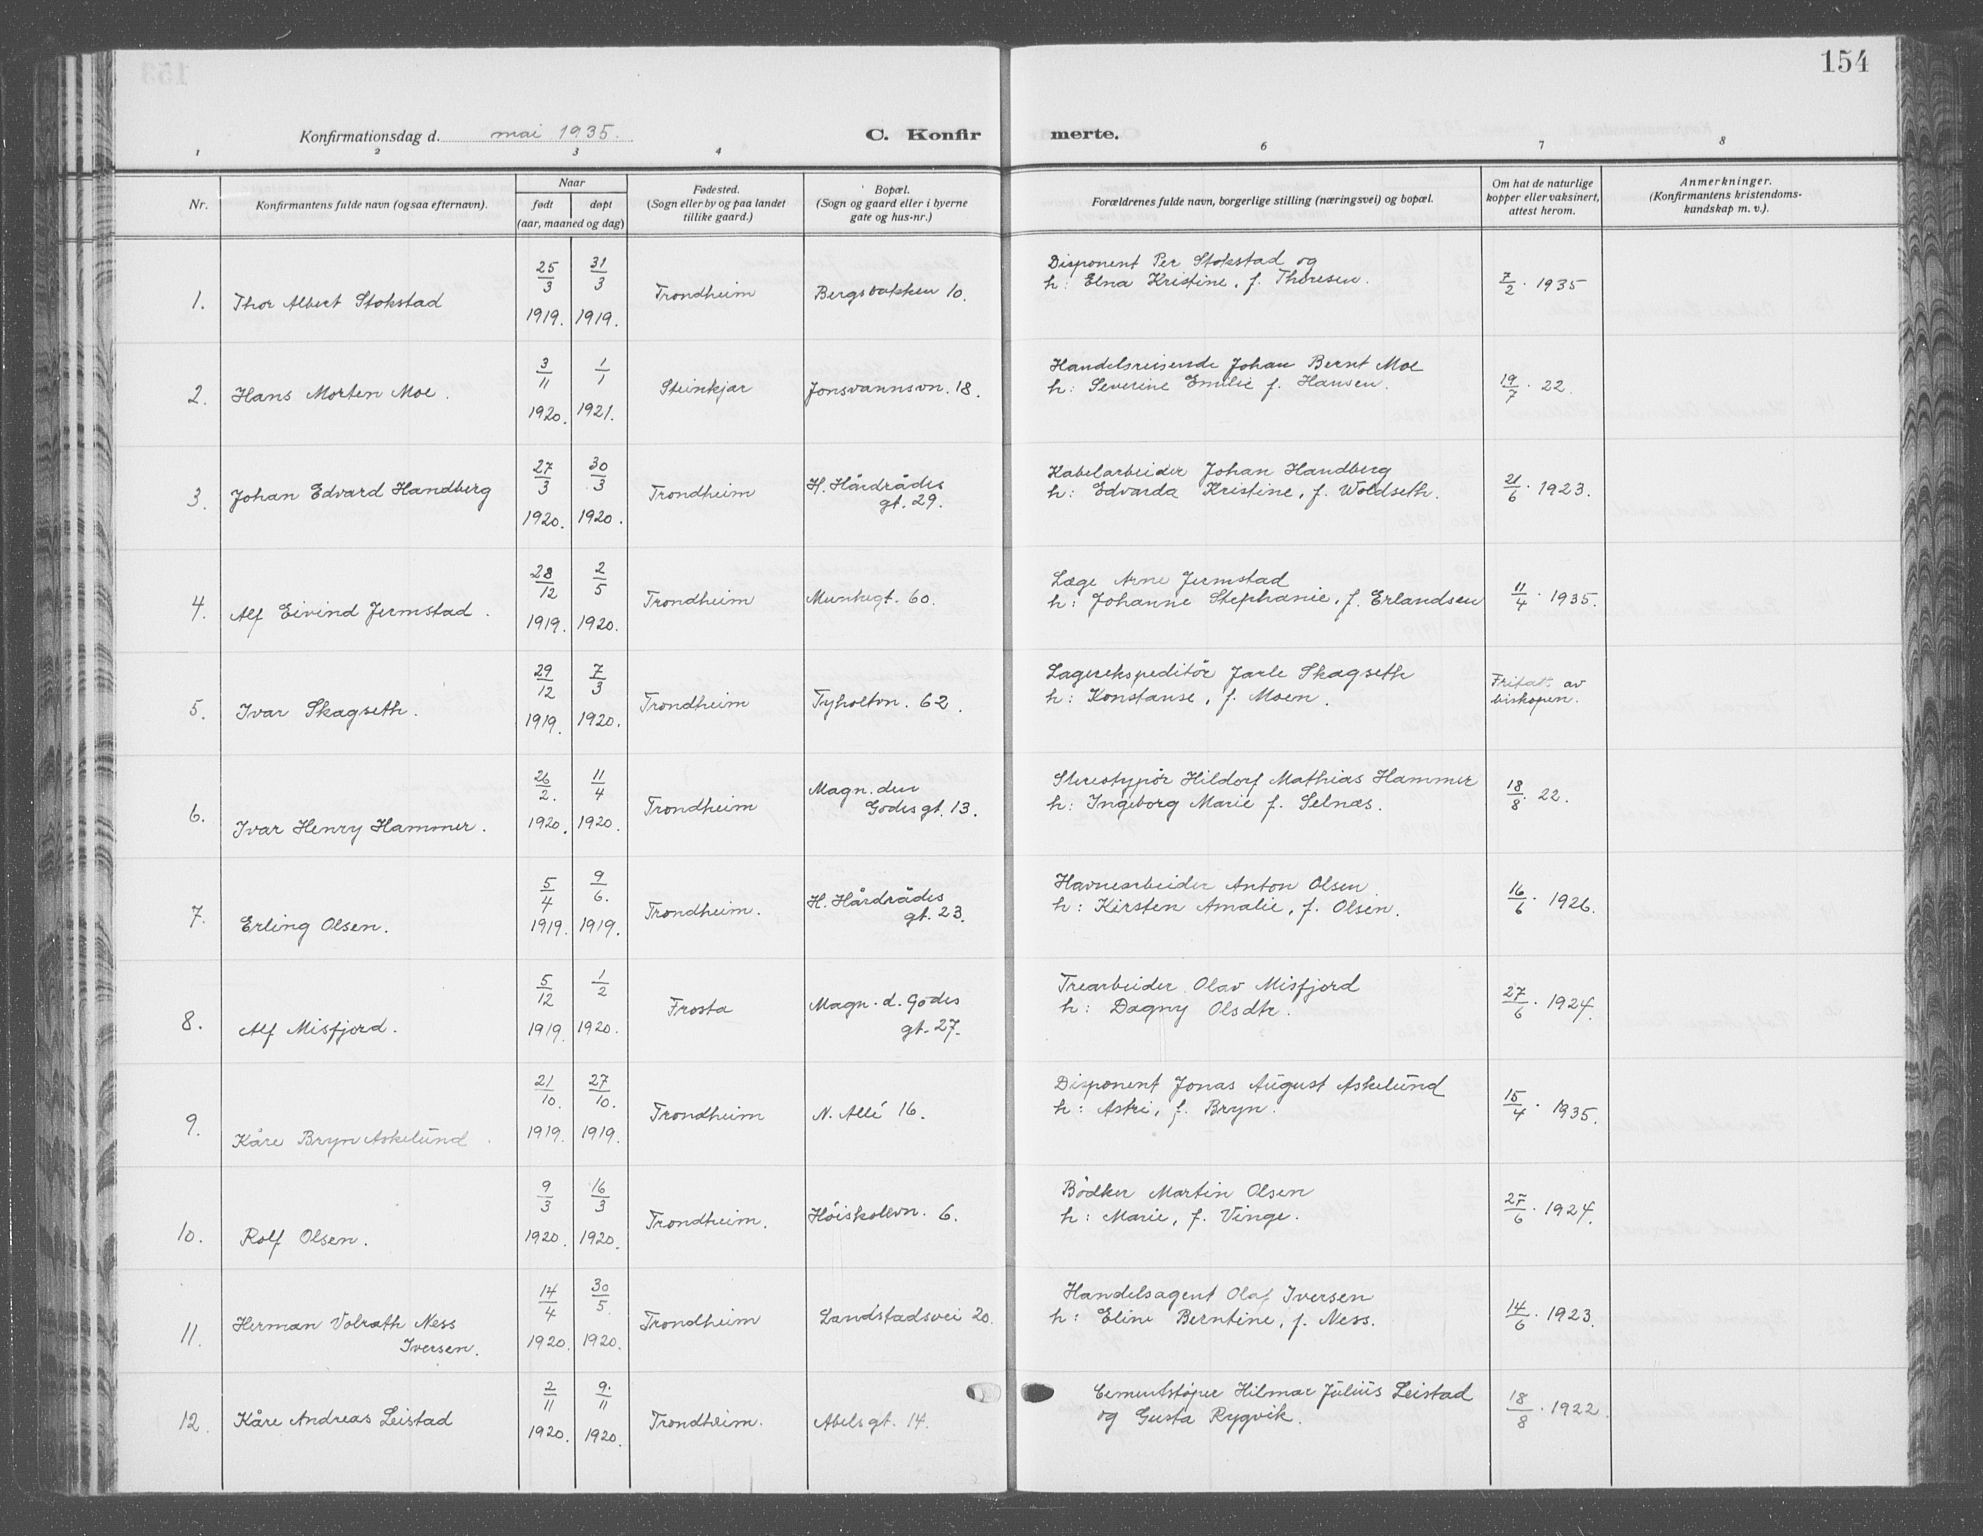 154
Konfirmationsdag d. mai 1935. C. Konfirmerte.
1 2 3 4 6 7 8
Nr. Konfirmantens fulde navn (ogsaa efternavn). Naar født døpt (aar, maaned og dag) Fødested. (Sogn eller by og paa landet tillike gaard.) Bopæl. (Sogn og gaard eller i byerne gate og hus-nr.) Forældrenes fulde navn, borgerlige stilling (næringsvei) og bopæl. Om hat de naturlige kopper eller vaksinert, attest herom. Anmerkninger. (Konfirmantens kristendoms-kundskap m. v.).
1. Thor Albert Stokstad 25/3 1919. 31/3 1919. Trondheim Bergsbakken 10. Disponent Per Stokstad og
h: Elna Kristine, f. Thoresen. 7/2. 1935
2. Hans Morten Moe. 3/11 1920. 1/1 1921. Steinkjær Jonsvannsvn. 18. Handelsreisende Johan Bernt Moe
h: Severine Emilie f. Hansen. 19/7. 22.
3. Johan Edvard Handberg 27/3 1920. 30/3 1920. Trondheim H. Hårdrådes gt. 29. Kabelarbeider Johan Handberg
h: Edvarda Kristine, f. Woldseth. 21/6. 1923.
4. Alf Eivind Jermstad. 28/12 1919. 2/5 1920. Trondheim Munkegt. 60. Læge Arne Jermstad
h: Johanne Stephanie, f. Erlandsen 11/4. 1935.
5. Ivar Skagseth. 29/12 1919. 7/3 1920. Trondheim Tyholtvn. 62. Lagerekspeditör Jarle Skagseth
h: Konstanse, f. Moen. Fritatt av biskopen.
6. Ivar Henry Hammer. 26/2. 1920. 11/4 1920. Trondheim Magn. den Godes gt. 13. Stereotypör Hildorf Mathias Hammer
h: Ingeborg Marie f. Selnæs. 18/8. 22.
7. Erling Olsen. 5/4 1919. 9/6. 1919. Trondheim. H. Hårdrådes gt. 23. Havnearbeider Anton Olsen.
h: Kirsten Amalie, f. Olsen. 16/6. 1926.
8. Alf Misfjord. 5/12 1919. 1/2 1920. Frosta Magn. d. Godes gt. 27. Trearbeider Olav Misfjord
h: Dagny Olsdtr. 27/6. 1924.
9. Kåre Bryn Askelund. 21/10. 1919. 27/10. 1919. Trondheim N. Allé 16. Disponent Jonas August Askelund
h: Astri, f. Bryn. 15/4. 1935.
10. Rolf Olsen. 9/3 1920. 16/3 1920. Trondheim. Höiskolevn. 6. Bödker Martin Olsen
h: Marie, f. Vinge. 27/6. 1924.
11. Herman Volrath Ness Iversen. 14/4 1920. 30/5. 1920. Trondheim Landstadsvei 20. Handelsagent Olaf Iversen
h: Eline Berntine, f. Ness. 14/6. 1923.
12. Kåre Andreas Leistad 2/11 1920. 9/11 1920. Trondheim. Abels gt. 14. Cementstøper Hilmar Julius Leistad
og Gusta Rygvik. 18/8. 1922.